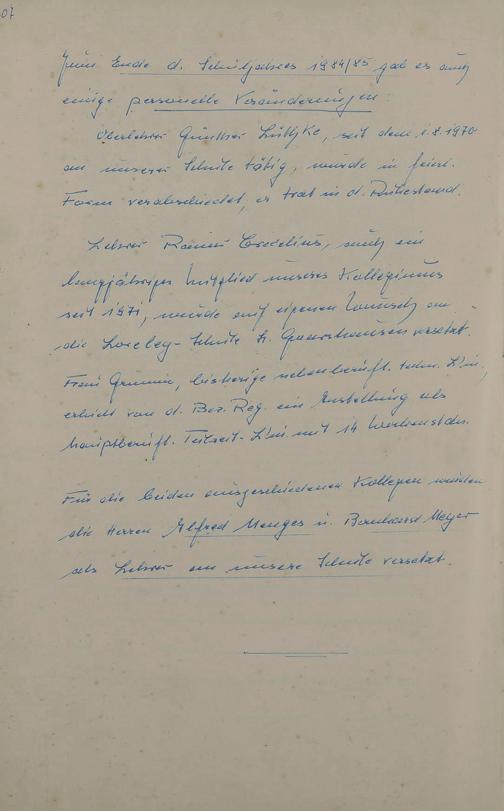 07
Zum Ende d. Schuljahres 1984/85 gab es auch
einige personelle Veränderungen:
Oberlehrer Günther Lüttjke, seit dem 1.8.1970
an unserer Schule tätig, wurde in feierl.
Form verabschiedet, er trat in d. Ruhestand.
Lehrer Rainer Credelius, auch ein
langjähriges Mitglied unseres Kollegiums
seit 1971, wurde auf eigenen Wunsch an
die Loreley-Schule St. Goarshausen versetzt.
Frau Grumm, bisherige nebenberufl. techn. L'in,
erhielt von d. Bez. Reg. ein Anstellung als
hauptberufl. Teilzeit-L'in. mit 14 Wochenstdn.
Für die beiden ausgeschiedenen Kollegen wurden
die Herren Alfred Menges u. Bernhard Meyer
als Lehrer an unsere Schule versetzt.